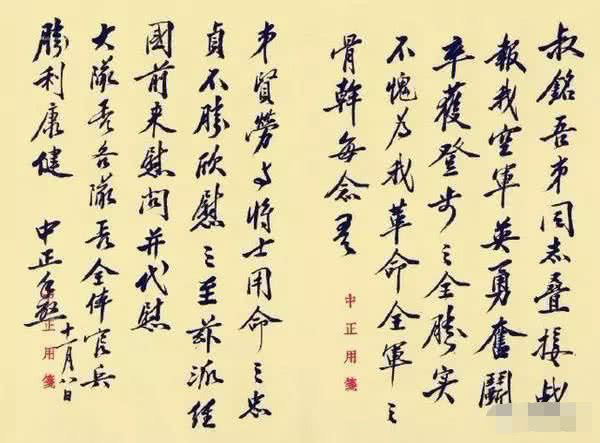 叔銘吾弟同志疊接战
報我空軍英勇奮鬪
卒獲登步之全勝實
不愧為我革命全軍之
骨幹每念吾
中正用箋
弟賢勞与將士用命之忠
貞不勝欣慰之至茲派經
國前來慰問并代慰
大隊長各隊長全体官兵
勝利康健 中正手啟
十一月八日
中正用箋